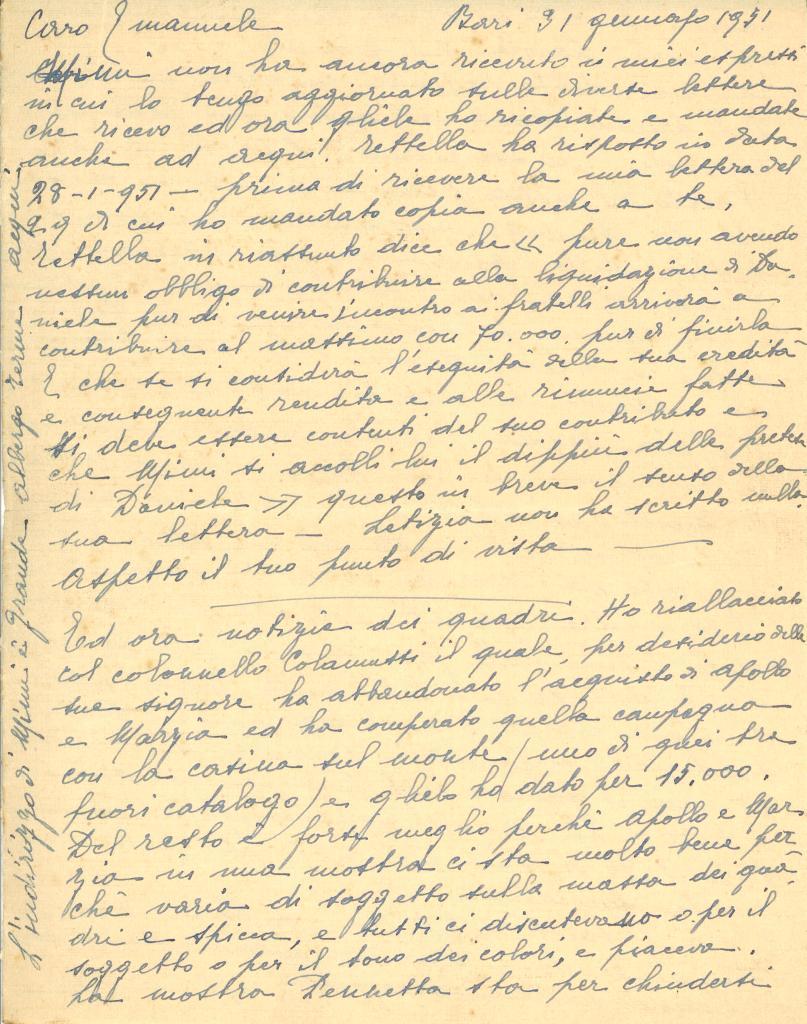 Caro Emanuele Bari 31 gennajo 1951
Mimì non ha ancora ricevuto i miei espressi
in cui lo tengo aggiornato sulle diverse lettere
che ricevo ed ora gliele ho ricopiate e mandate
anche ad acqui. Rettella ha risposto in data
28-1-951 — prima di ricevere la mia lettera del
29 di cui ho mandato copia anche a te,
Rettella in riassunto dice che << pure non avendo
nessun obbligo di contribuire alla liquidazione di Da-
niele pur di venire incontro ai fratelli arriverà a
contribuire al massimo con 70.000. pur di finirla
E che se si considera l'eseguità della sua eredità
e conseguente rendita e alle rinuncie fatte
si deve essere contenti del suo contributo e
che Mimi si accolli lui il dippiù delle pretese
di Daniele >> questo in breve il senso della
sua lettera — Letizia non ha scritto nulla.
Aspetto il tuo punto di vista —
Ed ora notizie dei quadri. Ho riallacciato
col colonnello Colamussi il quale, per desiderio delle
sue signore ha abbandonato l'acquisto di apollo
e Marzia ed ha comperato quella campagna
con la casina sul monte (uno di quei tre
fuori catalogo) e glielo ho dato per 15.000.
Del resto è forse meglio perchè apollo e Mar
zia in una mostra ci sta molto bene per
chè varia di soggetto sulla massa dei qua-
dri e spicca, e tutti ci discutevano o per il
soggetto o per il tono dei colori, e piaceva.
La mostra Pennetta sta per chiudersi
L'indirizzo di Mimì è Grande albergo terme acqui